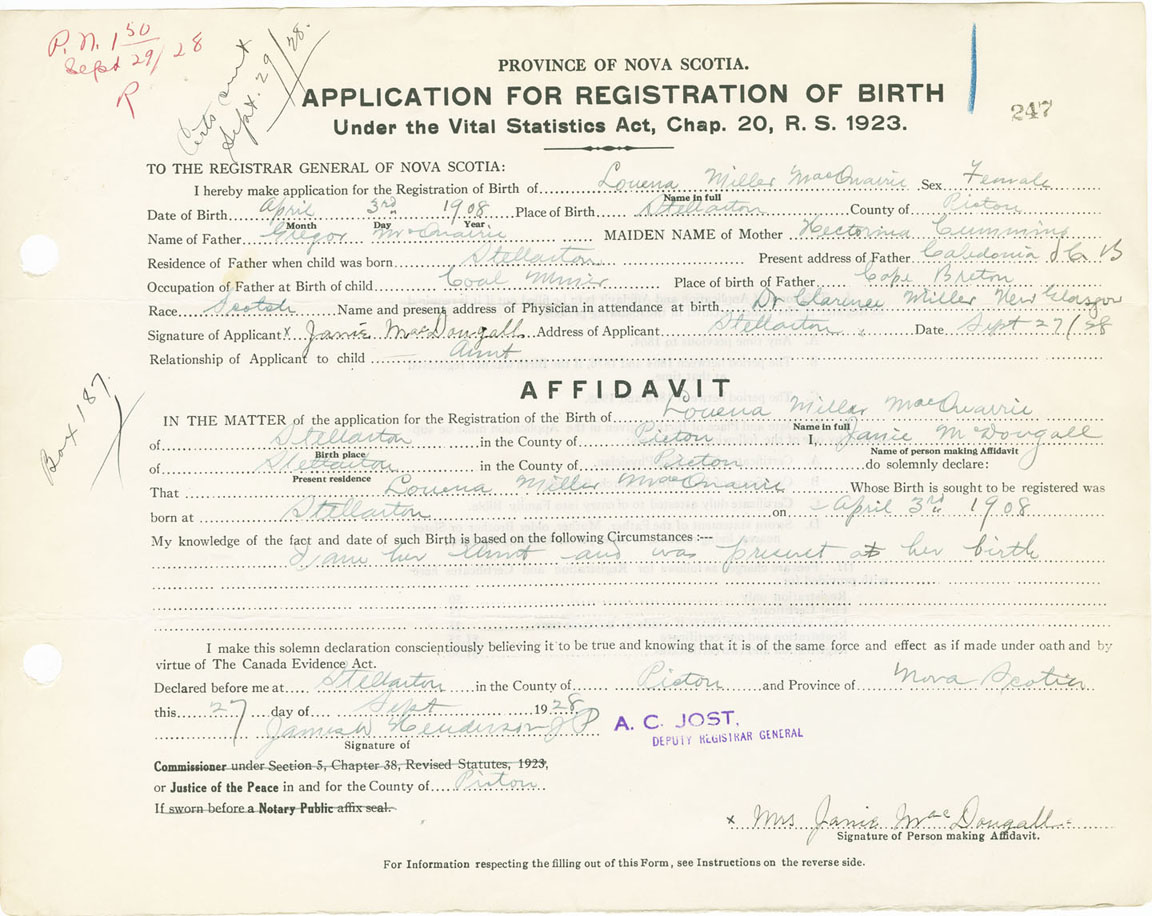 P.N. 1 50
Sept 29/28
R
Certs sent
Sept. 29/28.
PROVINCE OF NOVA SCOTIA.
APPLICATION FOR REGISTRATION OF BIRTH
247
Under the Vital Statistics Act, Chap. 20, R. S. 1923.
TO THE REGISTRAR GENERAL OF NOVA SCOTIA:
I hereby make application for the Registration of Birth of Louena Miller MacQuairie Sex Female
Name in full
Date of Birth April 3rd 1908 Place of Birth Stellarton County of Pictou
Month Day Year
Name of Father Gregor McQuairie MAIDEN NAME of Mother Hectorina Cummins
Residence of Father when child was born Stellarton Present address of Father Caledonia C B
Occupation of Father at Birth of child Coal Miner Place of birth of Father Cape Breton
Race Scotch Name and present address of Physician in attendance at birth Dr Clarence Miller New Glasgow
Signature of Applicant x Janie MacDougall Address of Applicant Stellarton Date Sept 27/28
Relationship of Applicant to child Aunt
AFFIDAVIT
Box 187.
IN THE MATTER of the application for the Registration of the Birth of Louena Miller MacQuairie
Name in full
of Stellarton in the County of Pictou I, Janie McDougall
Birth place Name of person making Affidavit
of Stellarton in the County of Pictou do solemnly declare:
Present residence
That Louena Miller MacQuairie Whose Birth is sought to be registered was
born at Stellarton on April 3rd 1908
My knowledge of the fact and date of such Birth is based on the following Circumstances :---
I am her Aunt and was present at her birth
I make this solemn declaration conscientiously believing it to be true and knowing that it is of the same force and effect as if made under oath and by
virtue of The Canada Evidence Act.
Declared before me at Stellarton in the County of Pictou and Province of Nova Scotia
this 27 day of Sept 1928
James W Henderson JP
Signature of
A. C. JOST,
DEPUTY REGISTRAR GENERAL
Commissioner under Section 5, Chapter 38, Revised Statutes, 1923,
or Justice of the Peace in and for the County of Pictou
If sworn before a Notary Public affix seal.
x Mrs Janie MacDougall
Signature of Person making Affidavit.
For Information respecting the filling out of this Form, see Instructions on the reverse side.